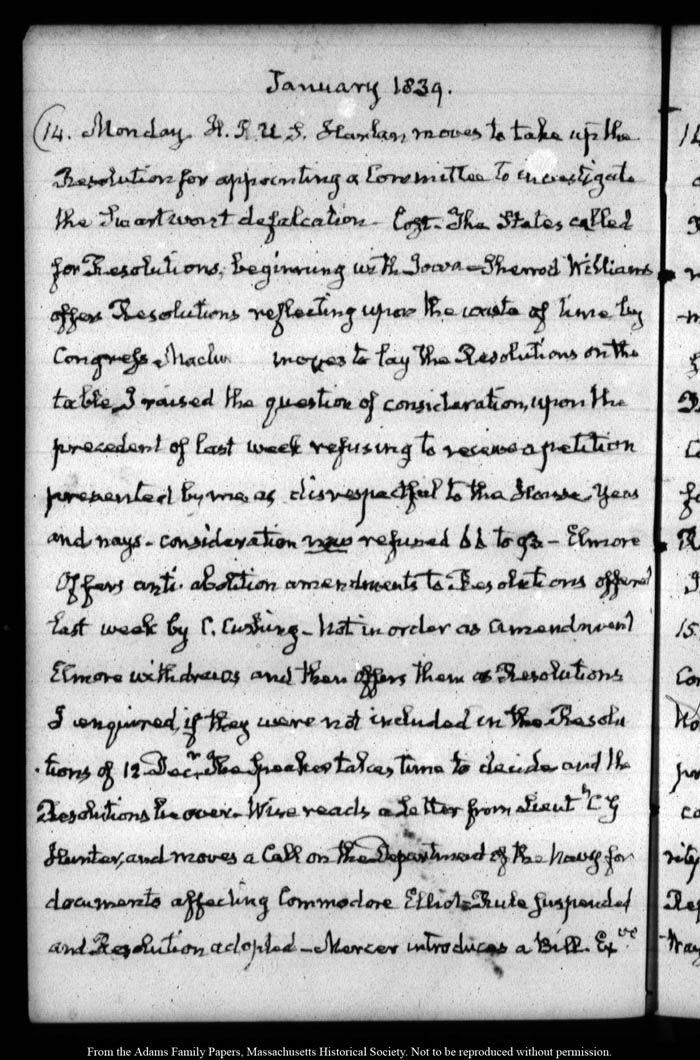 January 1839.
14. Monday. H. R. U. S. Harlan moves to take up the
Resolution for appointing a Committee to investigate
the Swartwout defalcation - Lost. The States called
for Resolutions, beginning with Iowa - Sherrod Williams
offers Resolutions reflecting upon the waste of time by
Congress. moves to lay the Resolutions on the
table, I raised the question of consideration, upon the
precedent of last week refusing to receive a petition
presented by me, as disrespectful to the House, Yeas
and nays - consideration refused 66 to 93 - Elmore
Offers anti-abolition amendments to Resolutions offered
last week by C. Cushing - Not in order as amendment
Elmore withdraws and then offers them as Resolutions
I enquired, if they were not included in the Resolu
tions of 12 Decr. The Speaker takes time to decide and the
Resolutions lie over. Wise reads a Letter from Lieut t C G
Hunter, and moves a Call on the Department of the Navy for
documents affecting Commodore Elliot - Rule suspended
and Resolution adopted - Mercer introduces a Bill. Exve
14
15.
From the Adams Family Papers, Massachusetts Historical Society. Not to be reproduced without permission.